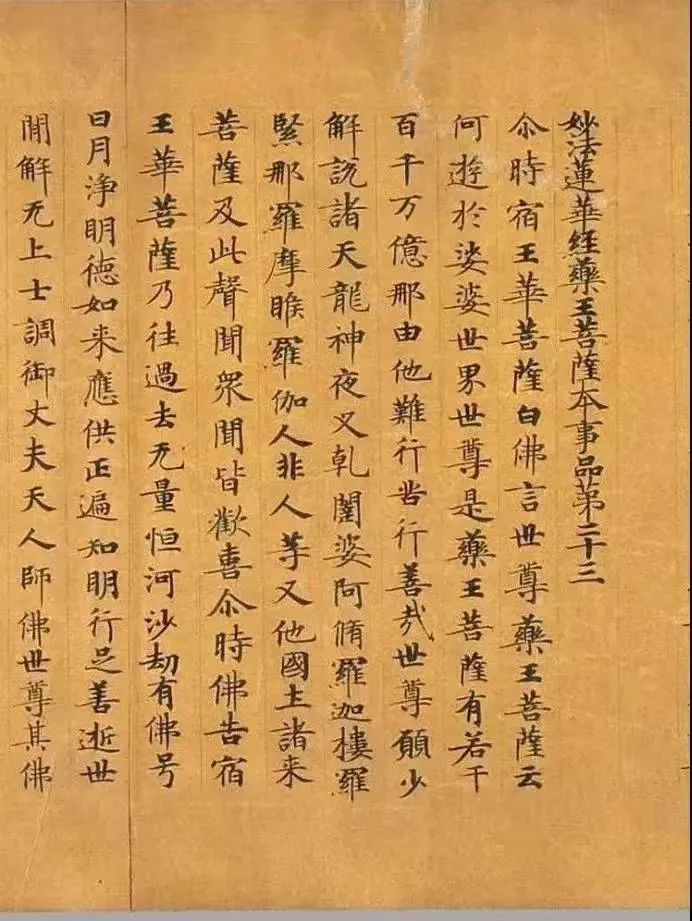 妙法蓮華経藥王菩薩本事品第二十三
尒時宿王華菩薩白佛言世尊藥王菩薩云
何遊於娑婆世界世尊是藥王菩薩有若干
百千万億那由他難行苦行善㢤世尊願少
解說諸天龍神夜叉乹闥婆阿脩羅迦樓羅
緊那羅摩睺羅伽人非人等又他國土諸来
菩薩及此聲聞衆聞皆歡喜尒時佛告宿
王華菩薩乃往過去无量恒河沙劫有佛号
日月淨明德如来應供正遍知明行足善逝世
間解无上士調御丈夫天人師佛世尊其佛